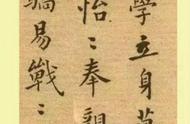 學立身莫
怡〻奉親
易戰〻